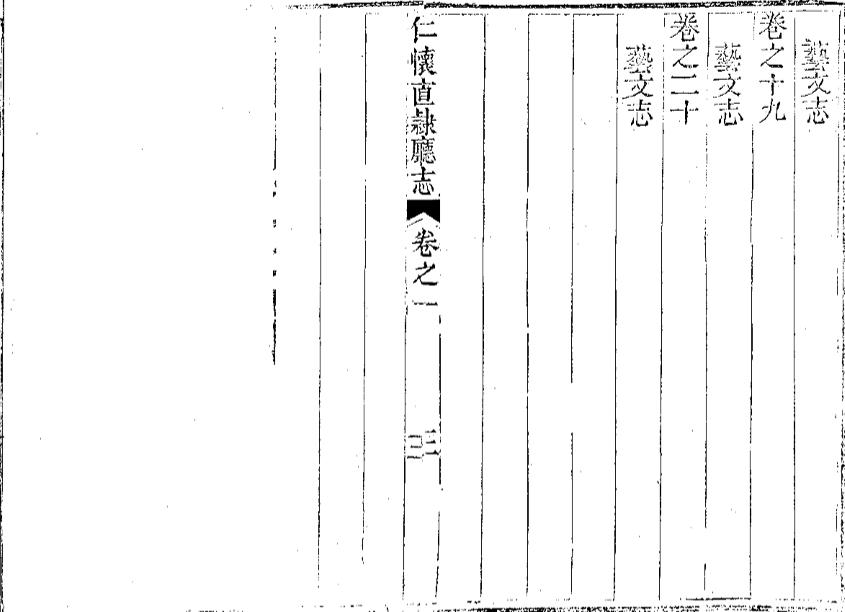 藝文志
卷之十九
藝文志
卷之二十
藝文志
仁懷直隸廳志
卷之一